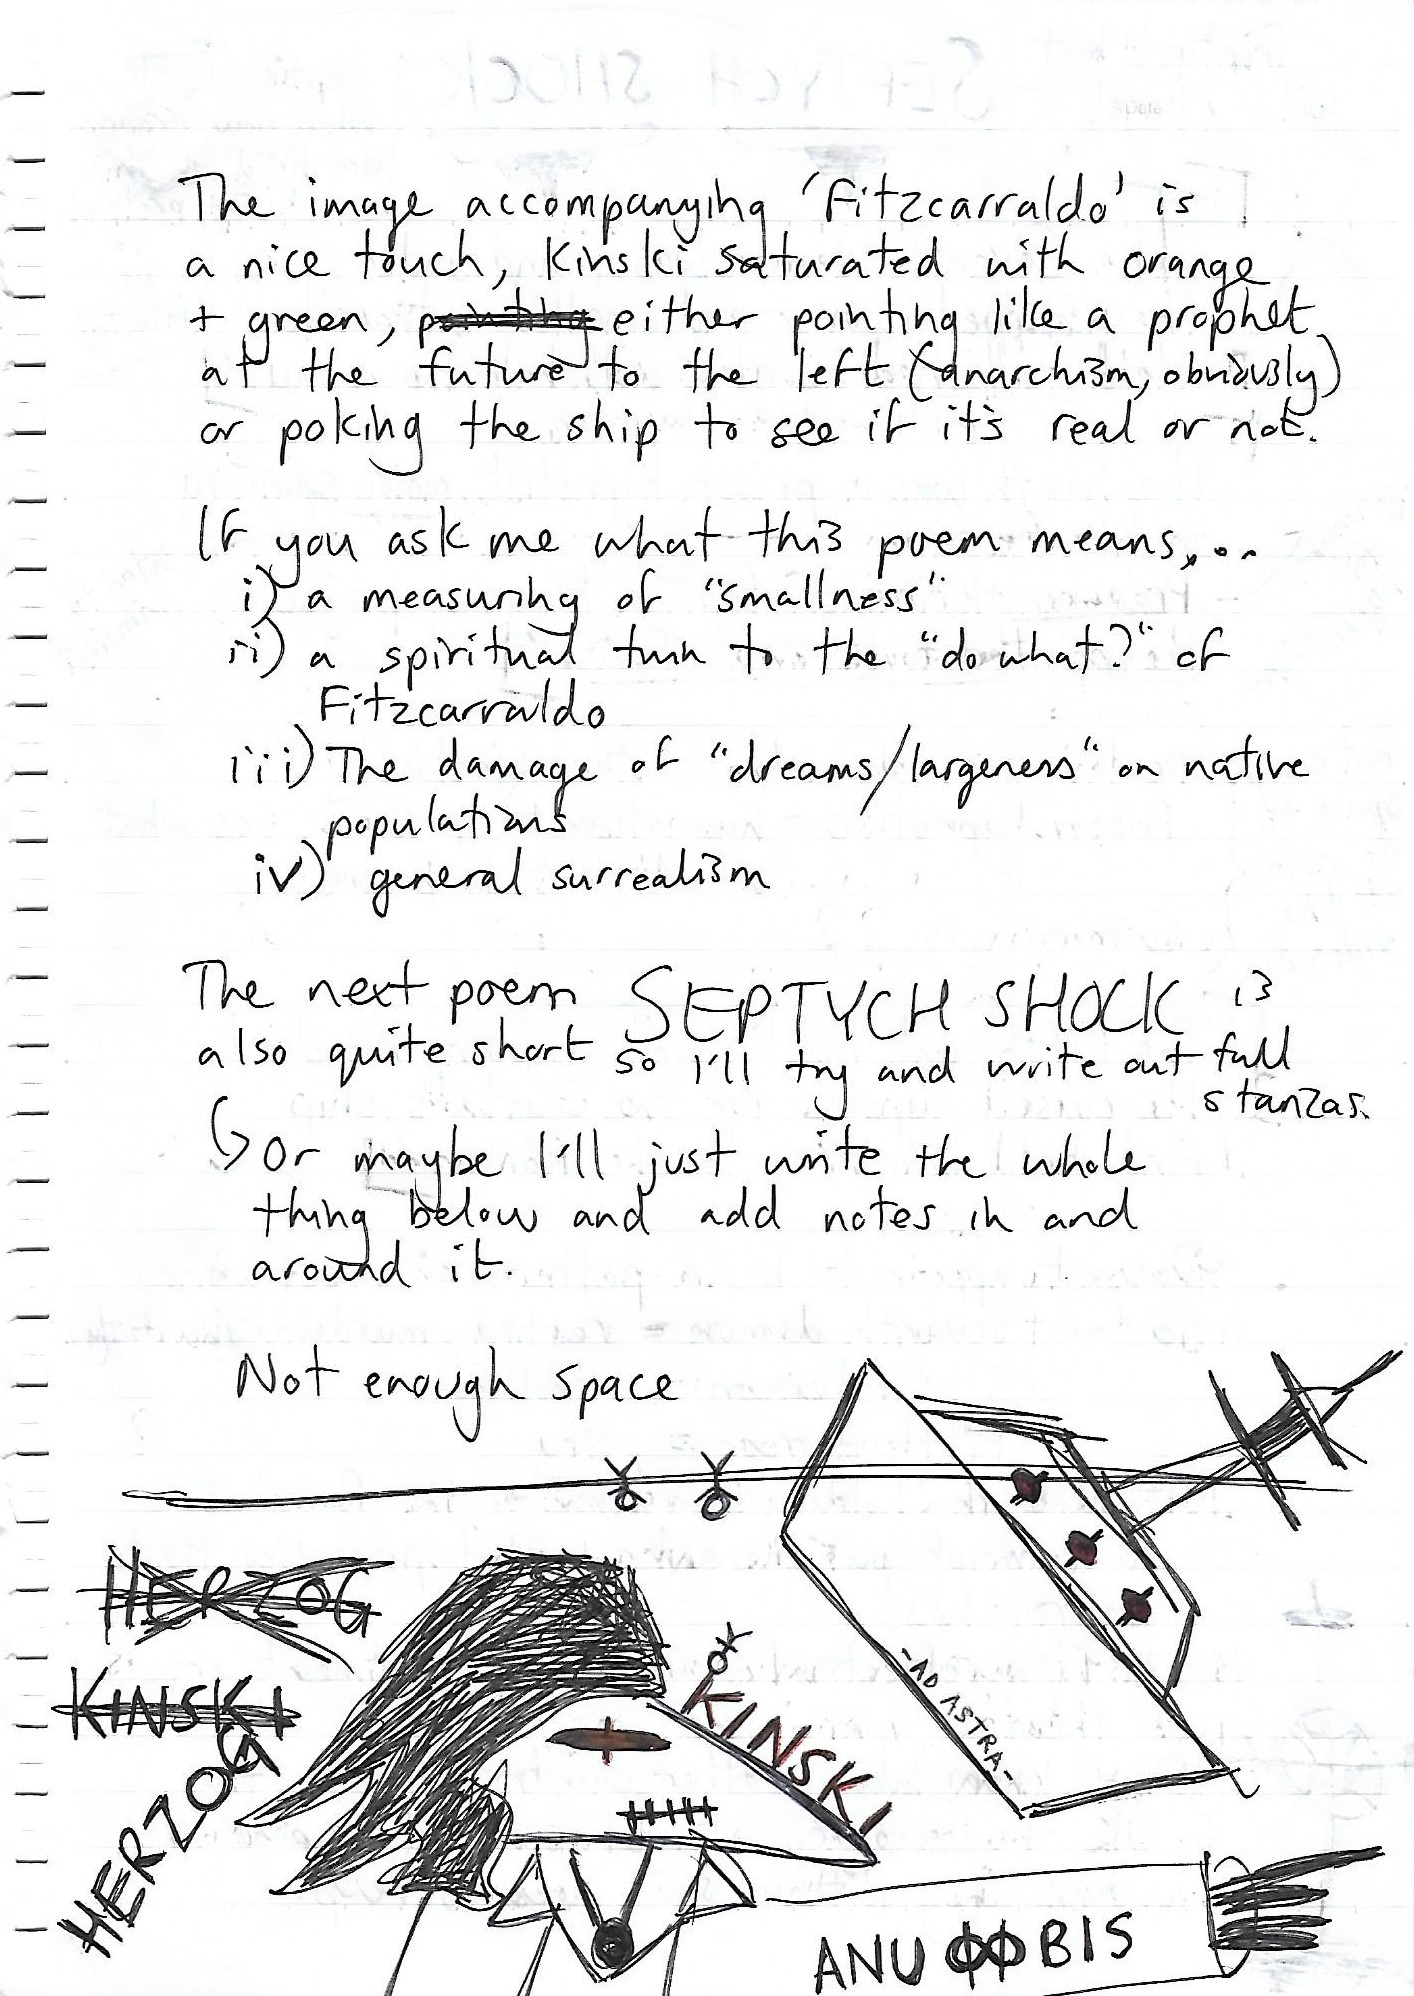 The image accompanying 'Fitzcarraldo' is
a nice touch, Kinski saturated with orange
+ green, pointing either pointing like a prophet
at the future to the left (anarchism, obviously)
or poking the ship to see if it's real or not.
If you ask me what this poem means,...
i) a measuring of "smallness"
ii) a spiritual turn to the "do what?" of
Fitzcarraldo
iii) The damage of "dreams/largeness" on native
populations
iv) general surrealism
The next poem SEPTYCH SHOCK is
also quite short so I'll try and write out full
stanzas.
Or maybe I'll just write the whole
thing below and add notes in and
around it.
Not enough space
HERZOG
KINSKI
HERZOG
KINSKI
-AD ASTRA-
ANUOOBIS